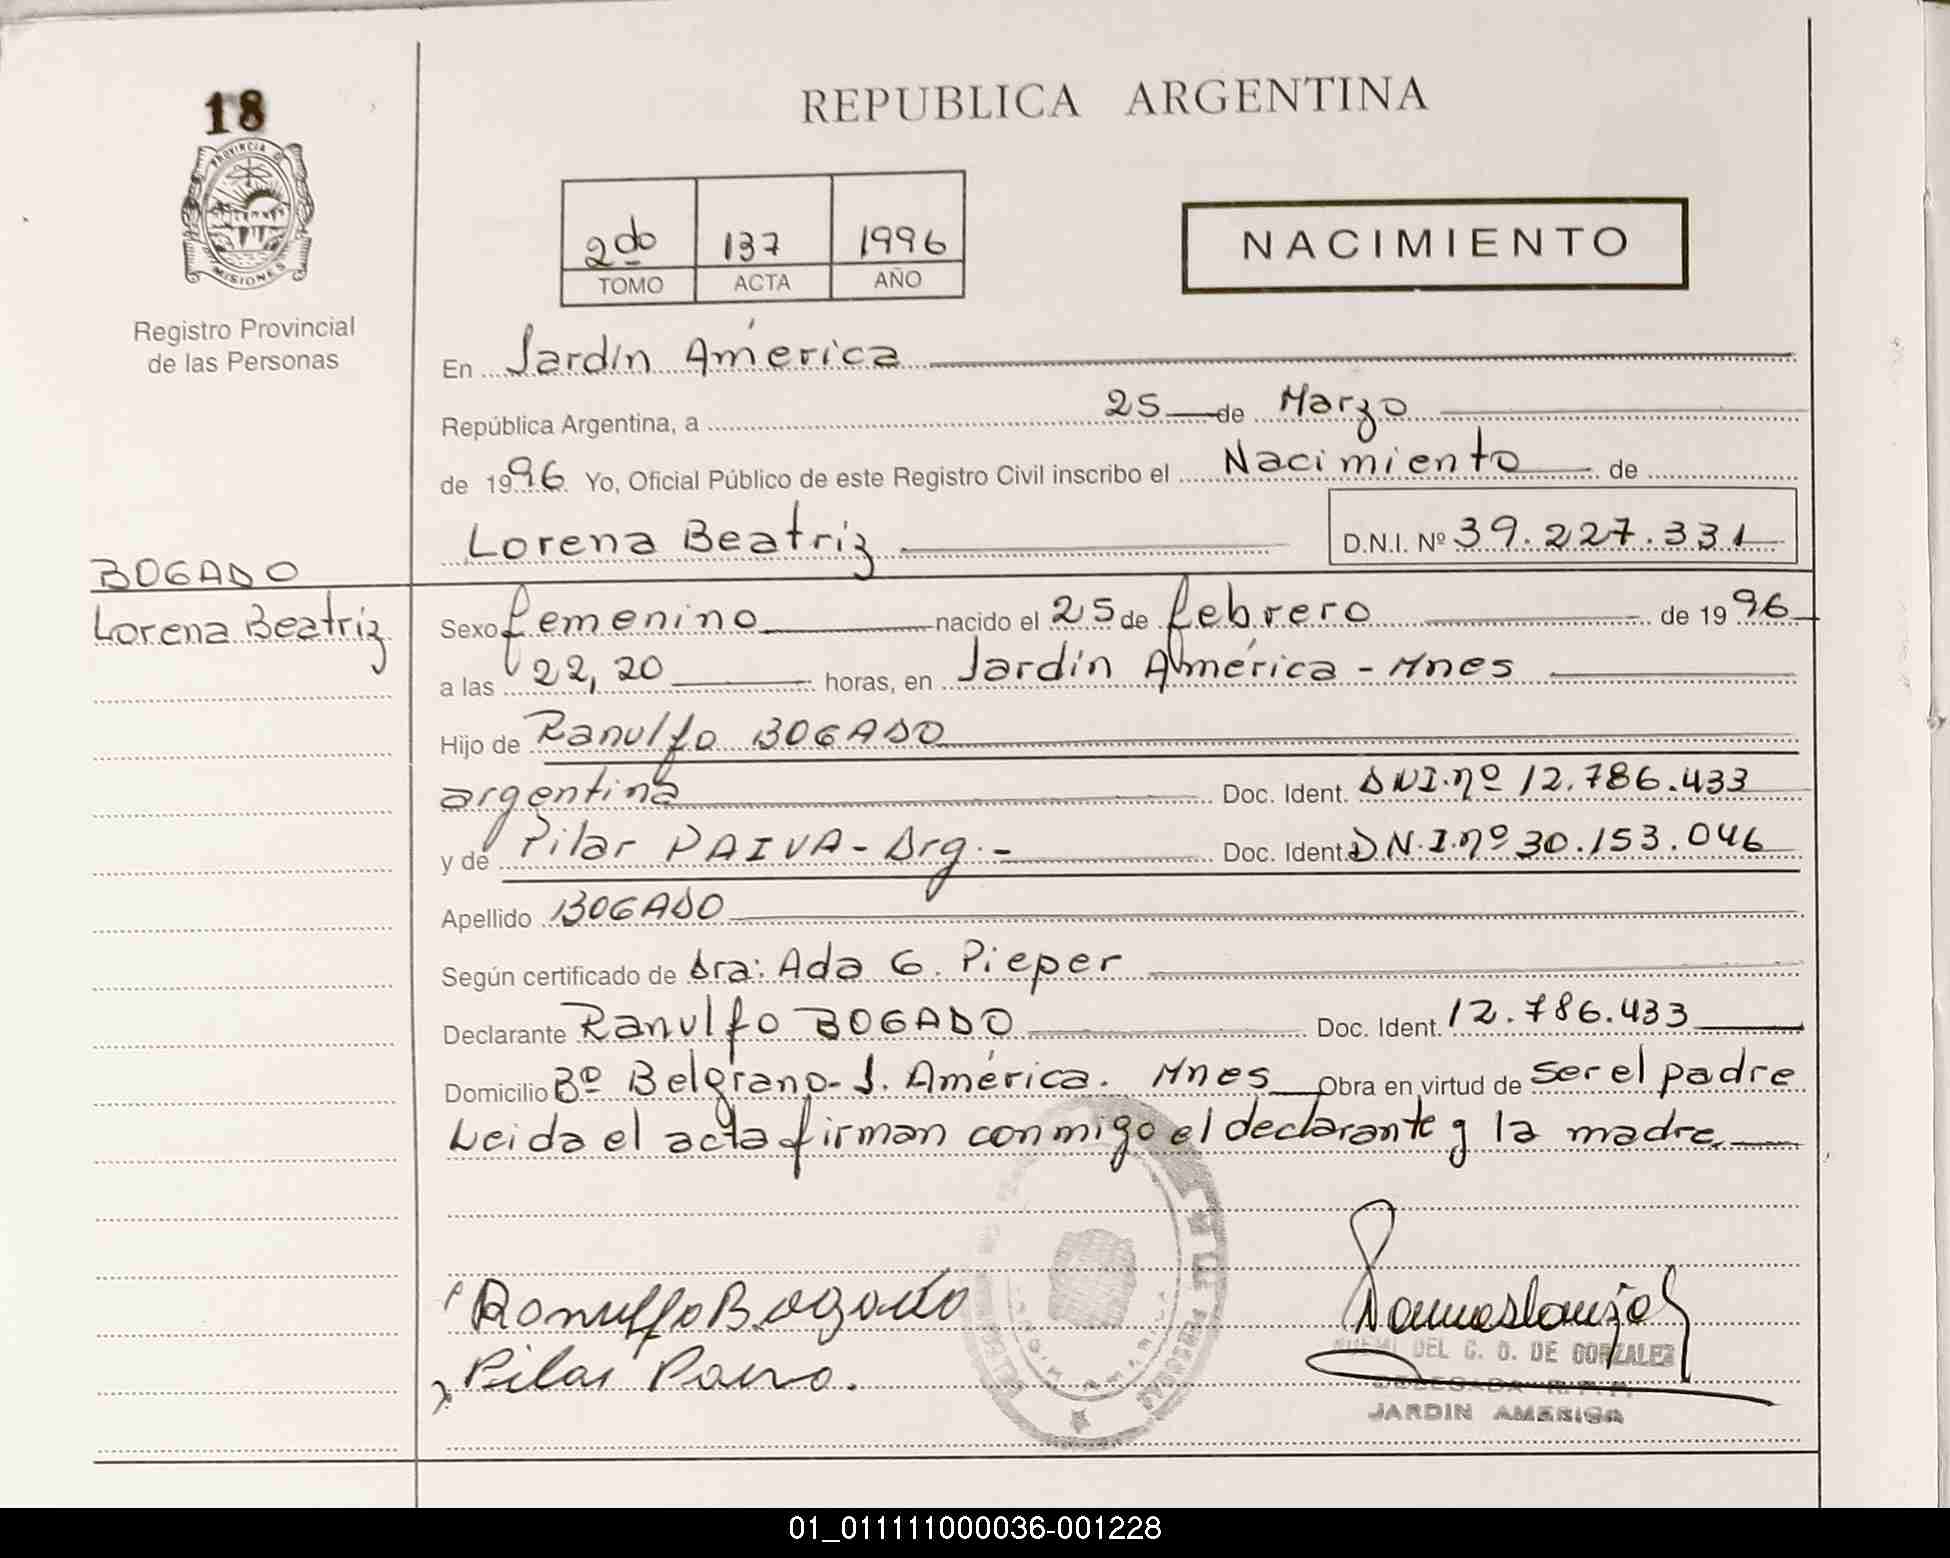 18
PROVINCIA D
MISIONES
Registro Provincial
de las Personas
REPUBLICA ARGENTINA
2do 137 1996
TOMO ACTA AÑO
NACIMIENTO
En Jardín América
República Argentina, a 25 de Marzo
de 1996 Yo, Oficial Público de este Registro Civil inscribo el Nacimiento de
Lorena Beatriz D.N.I. Nº 39.227.331
BOGADO
Lorena Beatriz
Sexo femenino nacido el 25 de febrero de 1996
a las 22,20 horas, en Jardín América - Mnes
Hijo de Ranulfo BOGADO
argentina Doc. Ident. DNI.nº 12.786.433
y de Pilar PAIVA - Arg.- Doc. Ident DN.I.nº 30.153.046
Apellido BOGADO
Según certificado de Dra: Ada G. Pieper
Declarante Ranulfo BOGADO Doc. Ident. 12.786.433
Domicilio Bº Belgrano - J. América. Mnes Obra en virtud de ser el padre
Leida el acta firman conmigo el declarante y la madre.
Ranulfo Bogado
Pilar Paiva.
DEL C. D. DE GONZALEZ
DELEGADA R.P.P.
JARDIN AMERICA
01_011111000036-001228